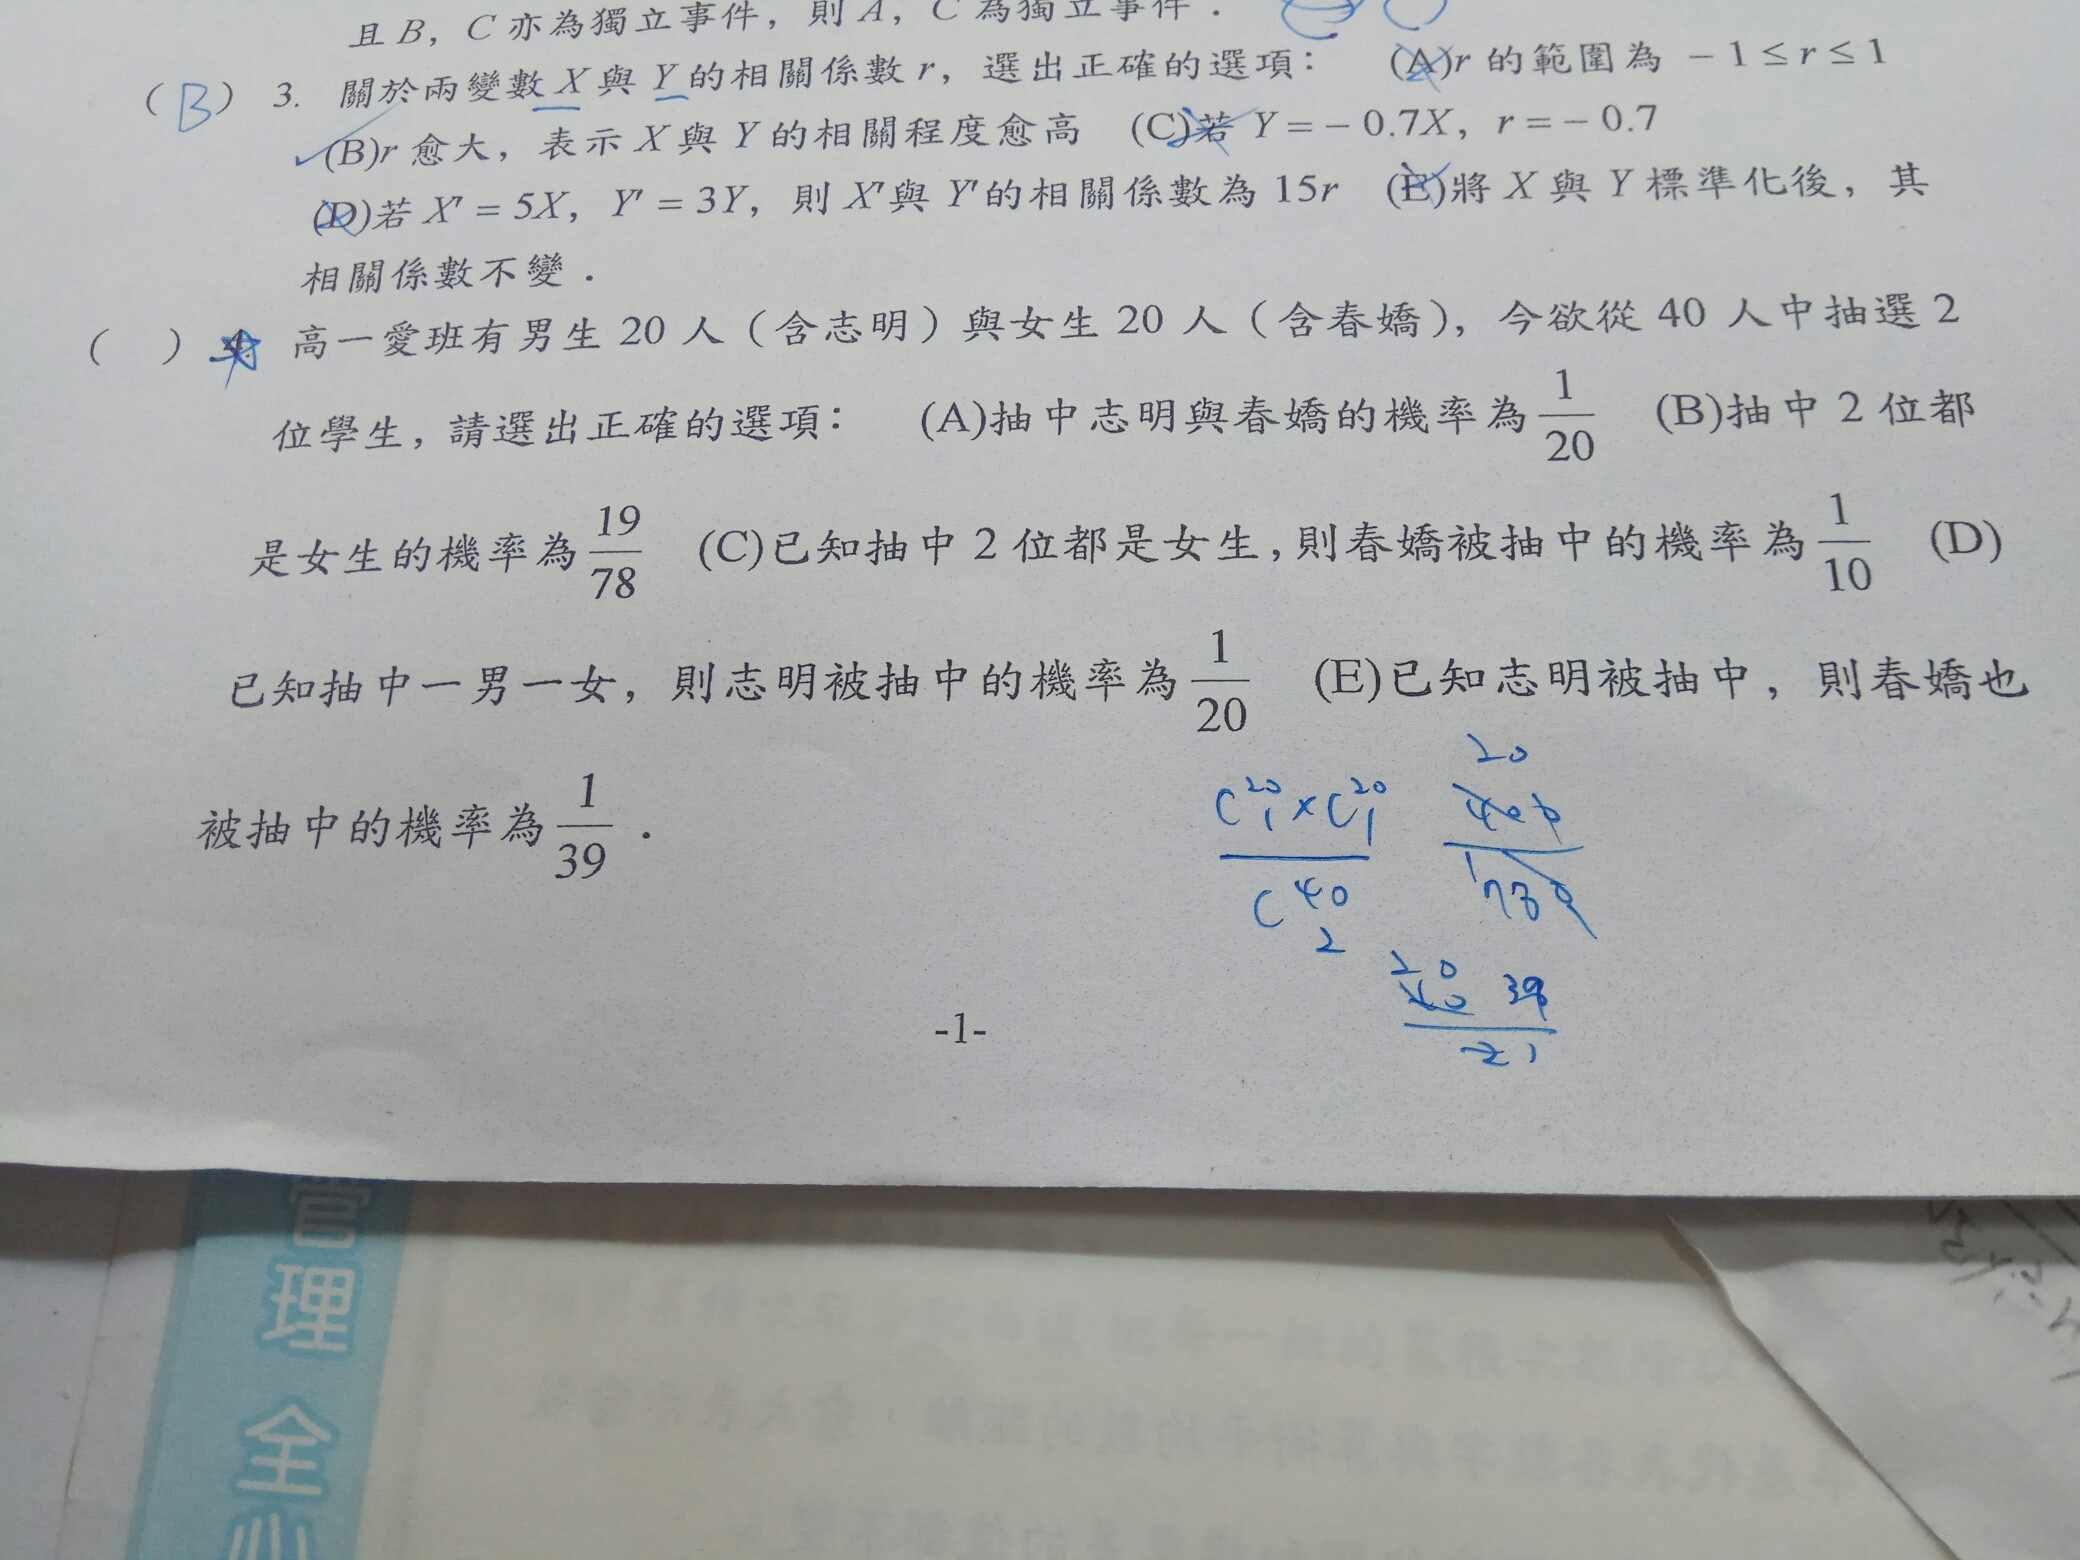 且 B，C 亦為獨立事件，則 A，C 為獨立事件．
( B ) 3. 關於兩變數 X 與 Y 的相關係數 r，選出正確的選項： (A)r 的範圍為 －1 ≤ r ≤ 1
(B)r 愈大，表示 X 與 Y 的相關程度愈高 (C)若 Y = － 0.7X，r = － 0.7
(D)若 X′ = 5X，Y′ = 3Y，則 X′與 Y′的相關係數為 15r (E)將 X 與 Y 標準化後，其
相關係數不變．
( ) 4. 高一愛班有男生 20 人（含志明）與女生 20 人（含春嬌），今欲從 40 人中抽選 2
位學生，請選出正確的選項： (A)抽中志明與春嬌的機率為 1/20 (B)抽中 2 位都
是女生的機率為 19/78 (C)已知抽中 2 位都是女生，則春嬌被抽中的機率為 1/10 (D)
已知抽中一男一女，則志明被抽中的機率為 1/20 (E)已知志明被抽中，則春嬌也
被抽中的機率為 1/39．
20
C 20 1 × C 20 1 400
C 40 2 780
20
40 39
2 1
-1-
管理 全心